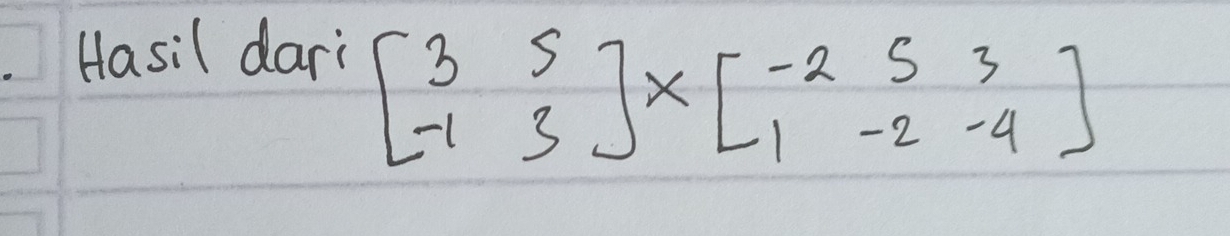 . Hasil dari [3 5 -1 3] × [-2 5 3 1 -2 -4]